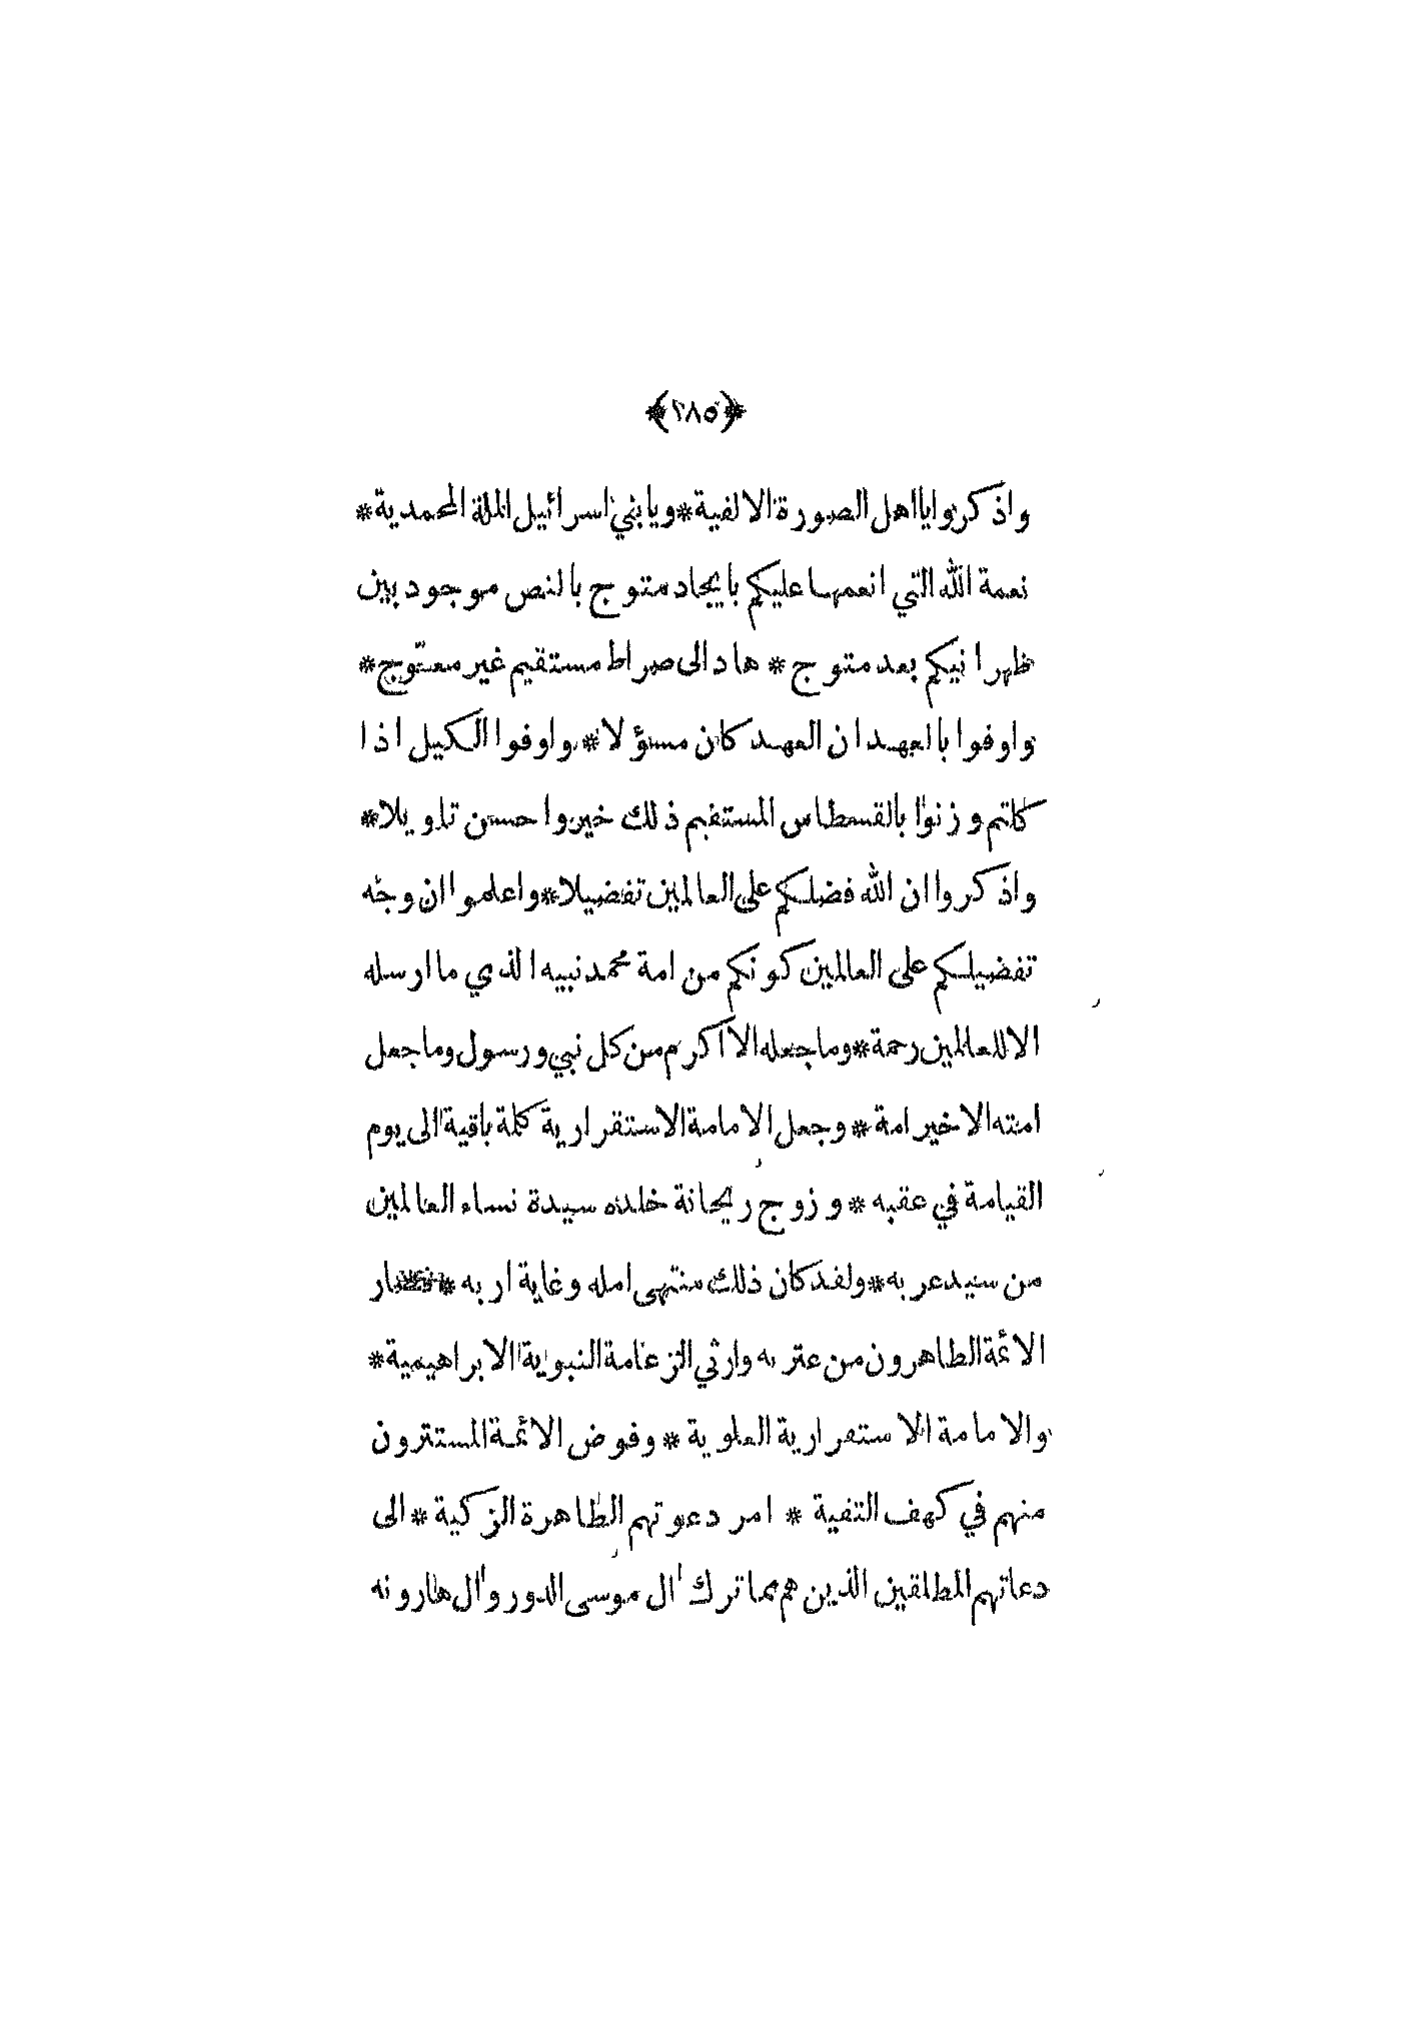 ﴿٢٨٥﴾
واذكروا يا اهل الصورة الالفية * ويا بني اسرائيل الملة المحمدية *
نعمة الله التي انعمها عليكم بايجاد متوج بالنص موجود بين
ظهرانيكم بعد متوج * هاد الى صراط مستقيم غير معتوج *
واوفوا بالعهد ان العهد كان مسؤلا * واوفوا الكيل اذا
كلتم وزنوا بالقسطاس المستقيم ذلك خير واحسن تاويلا *
واذكروا ان الله فضلكم على العالمين تفضيلا * واعلموا ان وجه
تفضيلكم على العالمين كونكم من امة محمد نبيه الذي ما ارسله
الا للعالمين رحمة * وما جعله الا اكرم من كل نبي ورسول وما جعل
امته الا خير امة * وجعل الامامة الاستقرارية كلمة باقية الى يوم
القيامة في عقبه * وزوج ريحانة خلده سيدة نساء العالمين
من سيد عربه * ولقد كان ذلك منتهى امله وغاية اربه * فصار
الائمة الطاهرون من عترته وارثي الزعامة النبوية الابراهيمية *
والامامة الاستقرارية العلوية * وفوض الائمة المستترون
منهم في كهف التقية * امر دعوتهم الطاهرة الزكية * الى
دعاتهم المطلقين الذين هم مما ترك ال موسى الدور وال هارونه